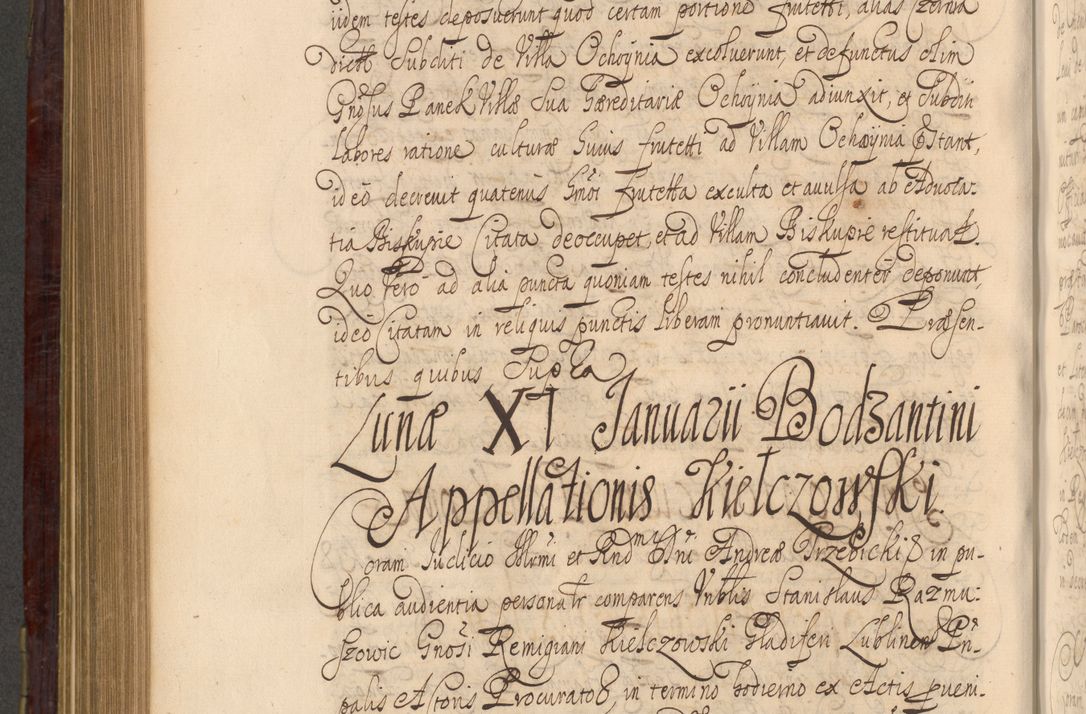 iidem testes deposuerunt quod certam portionē frutetti, alias Czernia
dicti Subditi de Villa Ochoynia excoluerunt, et defunctus olim
Gnosus Panek Villæ Sua Hæreditariæ Ochoynia adiunxit, et Subditi
labores ratione culturæ huius frutetti ad Villam Ochoynia præstant,
ideo decrevit quatenus hmoi frutetta exculta et auulsa ab Aduoca-
tia Biskupie Citata deoccupet, et ad Villam Biskupie restituat.
Quo vero ad alia puncta quoniam testes nihil concludenter deponunt,
ideo Citatam in reliquis punctis liberam pronuntiauit. Præsen-
tibus quibus Supra
Lunæ XI Januarii Bodzantini
Appellationis Kiełczowski.
Coram Judicio Illrmi et Rndmi Dni Andreæ Trzebicki Eppi in pu-
blica audientia personalr comparens Nblis Stanislaus Razmu-
szowic Gnosi Remigiani Kielczowski Gladiferi Lublinen Prin-
palis Actoris Procurator, in termino hodierno ex Actis pveni-